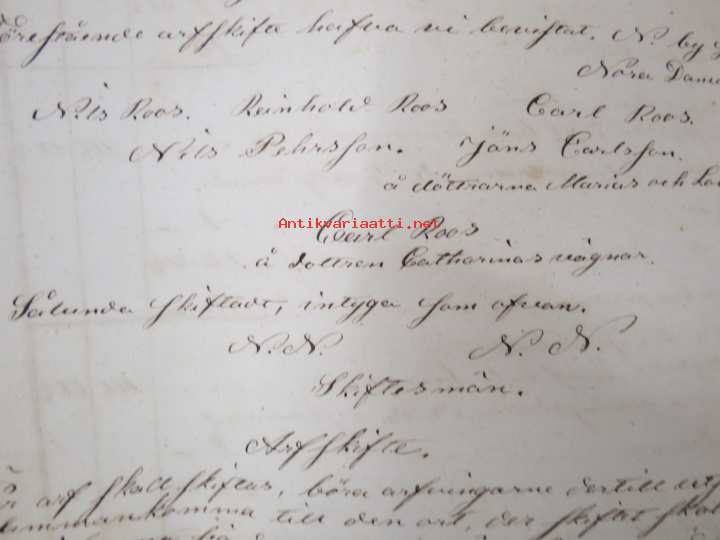 Förestående arfskifte hafva vi bevistat. N. by
Nora
Nils Roos. Reinhold Roos Carl Roos.
Nils Pehrsson. Jöns Carlsson.
å döttrarna Marias och
Antikvariaatti.net
Carl Roos
å dottren Catharinas vägnar.
Sålunda skiftadt, intyga som ofvan.
N. N. N. N.
Skiftesmän.
Arfskifte.
arf skall skiftas, böra arfvingarne dertill
till den ort, der skiftet